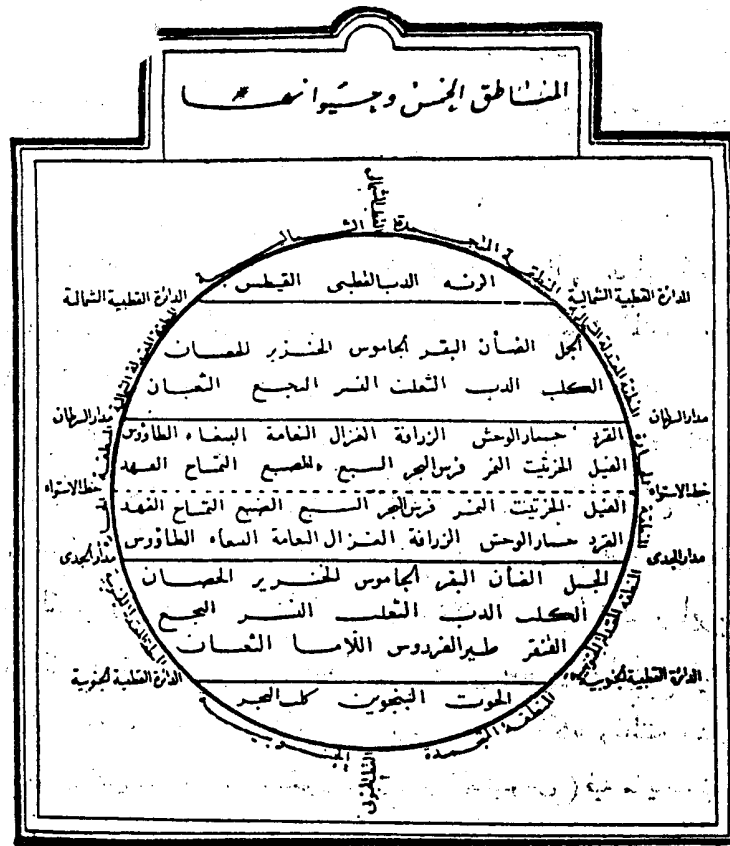 المناطق الخمس وحيواناتها
القطب الشمالي
المنطقة المتجمدة الشمالية
الرنه الدب القطبي القيطس
الدائرة القطبية الشمالية
الدائرة القطبية الشمالية
المنطقة المعتدلة الشمالية
المنطقة المعتدلة الشمالية
الجمل الضأن البقر الجاموس الخنزير الحصان
الكلب الدب الثعلب النسر البجع الثعبان
مدار السرطان
مدار السرطان
القرد حمار الوحش الزرافة الغزال النعامة الببغاء الطاؤوس
الفيل الخرتيت النمر فرس البحر السبع الضبع التمساح الفهد
خط الاستواء
خط الاستواء
الفيل الخرتيت النمر فرس البحر السبع الضبع التمساح الفهد
القرد حمار الوحش الزرافة الغزال النعامة الببغاء الطاؤوس
مدار الجدى
مدار الجدى
الجمل الضأن البقر الجاموس الخنزير الحصان
الكلب الدب الثعلب النسر البجع
القنقر طير الفردوس اللاما الثعبان
المنطقة المعتدلة الجنوبية
المنطقة المعتدلة الجنوبية
الدائرة القطبية الجنوبية
الدائرة القطبية الجنوبية
الحوت البنجوين كلب البحر
المنطقة المتجمدة الجنوبية
القطب الجنوبى